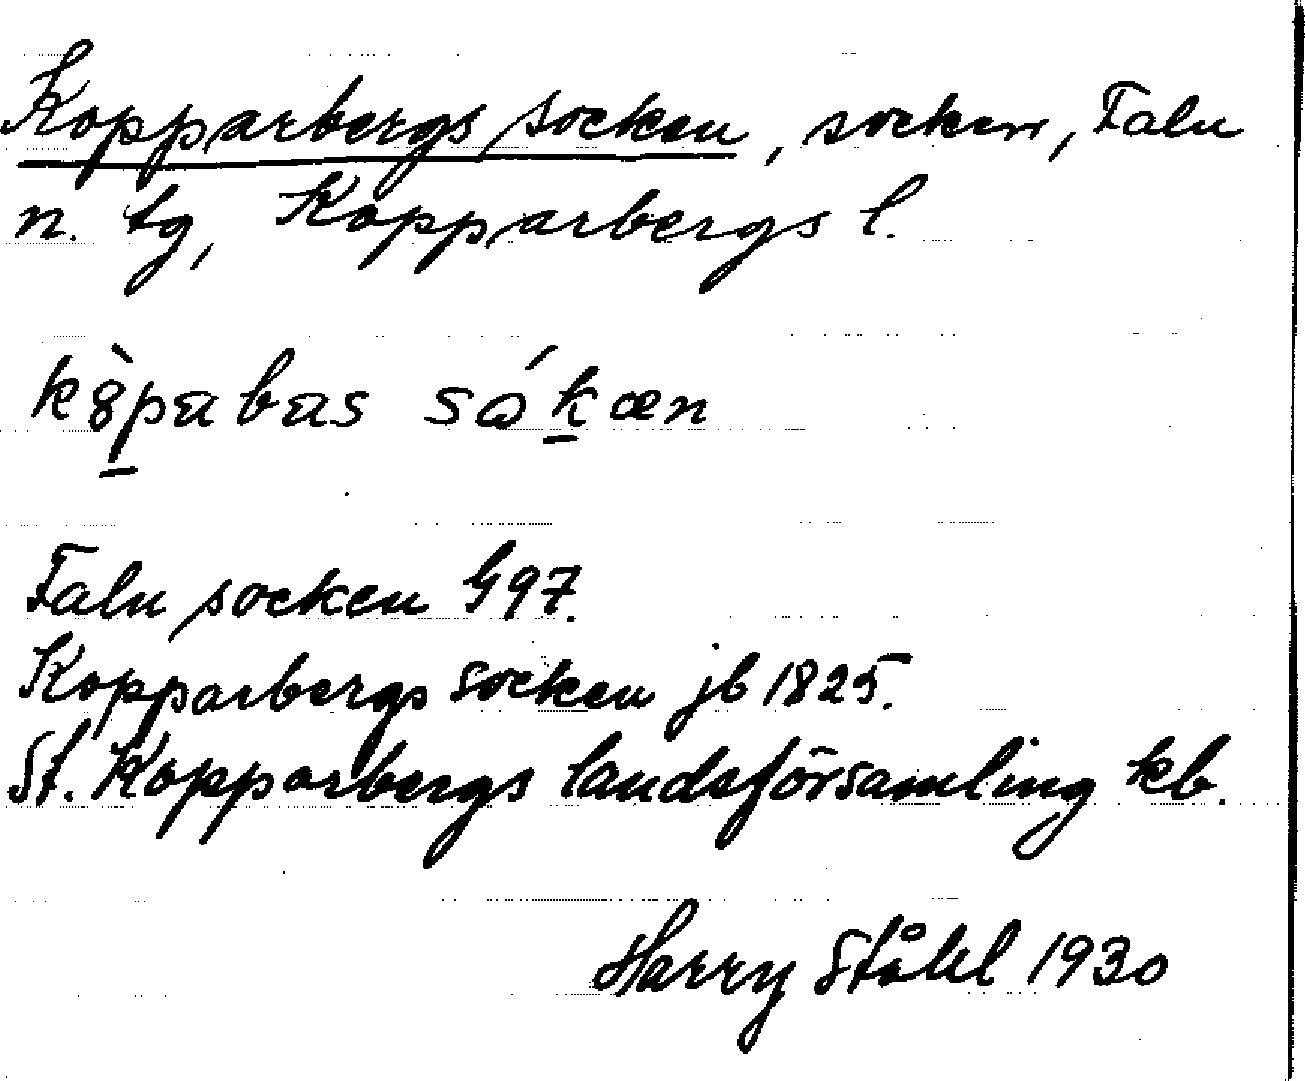 Kopparbergs socken, socken, Falu
n. tg, Kopparbergs l.
kȣ̀p̱abas sǻḵæn
Falu socken G97.
Kopparbergs socken jb 1825.
St. Kopparbergs landsförsamling kb.
Harry Ståhl 1930